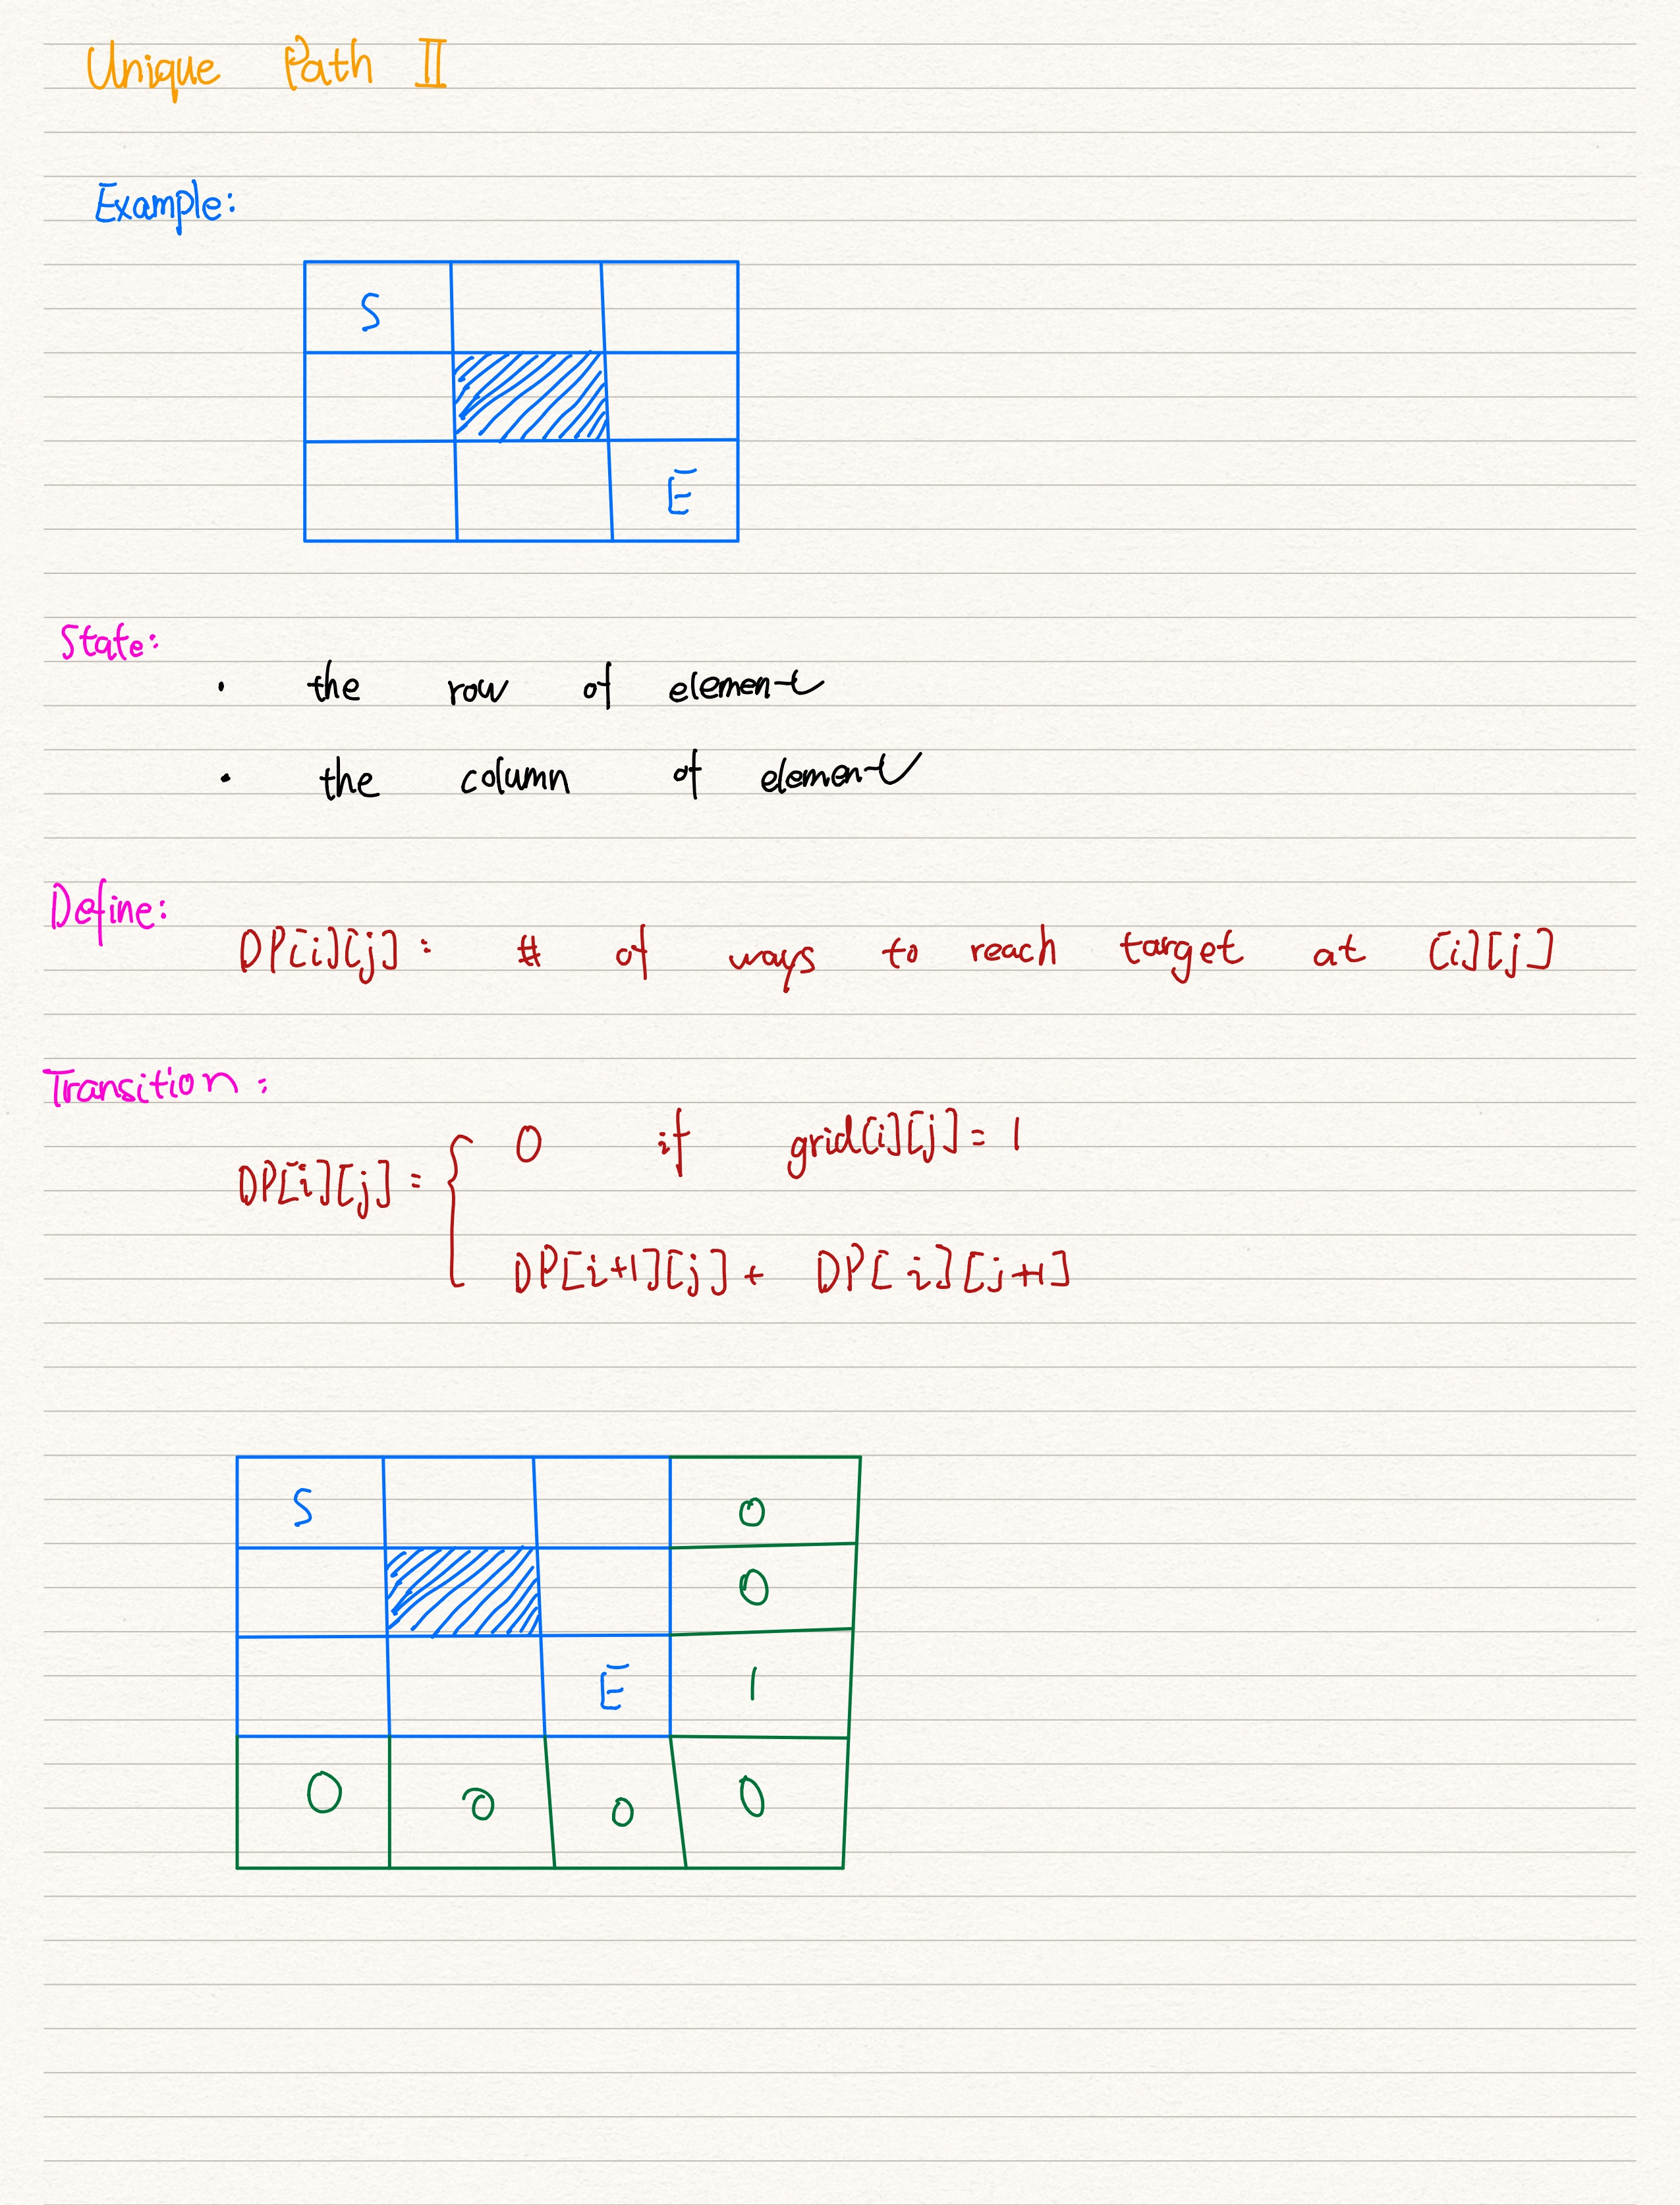 Unique Path II
Example:
S
E
State:
· the row of element
· the column of element
Define:
DP[i][j]: # of ways to reach target at [i][j]
Transition:
DP[i][j] = { 0 if grid[i][j] = 1
DP[i+1][j] + DP[i][j+1]
S 0
0
E 1
0 0 0 0